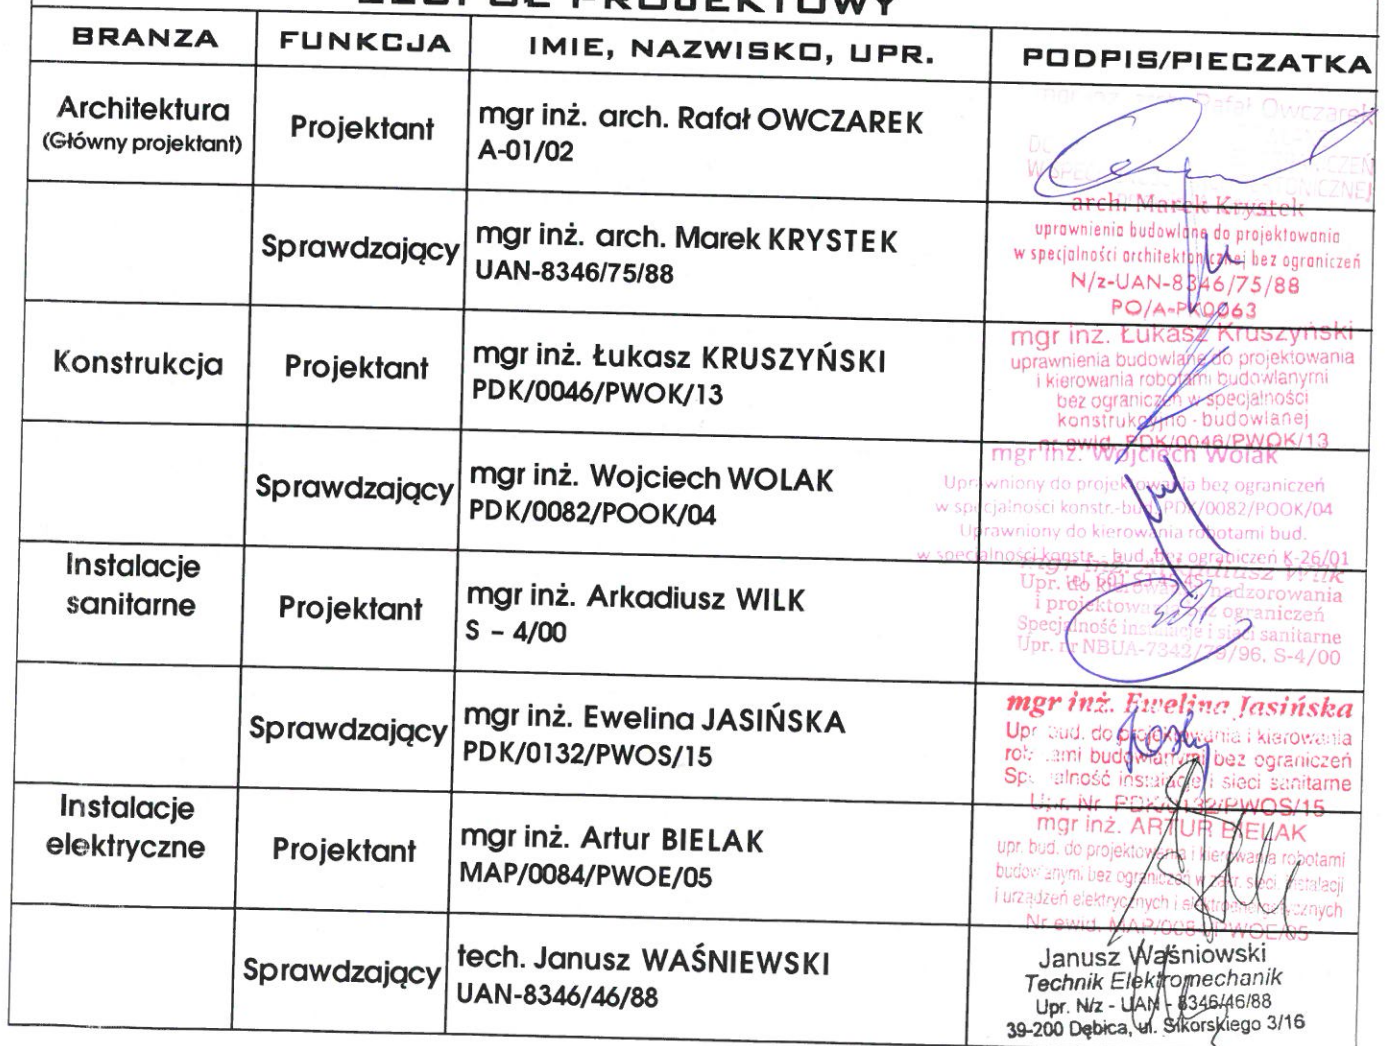 ZESPÓŁ PROJEKTOWY
BRANZA FUNKCJA IMIE, NAZWISKO, UPR. PODPIS/PIECZATKA
Architektura
(Główny projektant)
Projektant
mgr inż. arch. Rafał OWCZAREK
A-01/02
Rafał Owczarek
Sprawdzający
mgr inż. arch. Marek KRYSTEK
UAN-8346/75/88
arch. Marek Krystek
uprawnienia budowlane do projektowania
w specjalności architektonicznej bez ograniczeń
N/z-UAN-8346/75/88
PO/A-PK0063
Konstrukcja
Projektant
mgr inż. Łukasz KRUSZYŃSKI
PDK/0046/PWOK/13
mgr inż. Łukasz Kruszyński
uprawnienia budowlane do projektowania
i kierowania robotami budowlanymi
bez ograniczeń w specjalności
konstrukcyjno - budowlanej
nr ewid. PDK/0046/PWOK/13
Sprawdzający
mgr inż. Wojciech WOLAK
PDK/0082/POOK/04
mgr inż. Wojciech Wolak
Uprawniony do projektowania bez ograniczeń
w specjalności konstr.-bud. PDK/0082/POOK/04
Uprawniony do kierowania robotami bud.
w specjalności konstr. - bud. bez ograniczeń K-26/01
Instalacje
sanitarne
Projektant
mgr inż. Arkadiusz WILK
S – 4/00
mgr inż. Arkadiusz Wilk
Upr. do kierowania nadzorowania
i projektowania bez ograniczeń
Specjalność instalacje i sieci sanitarne
Upr. nr NBUA-7342/79/96, S-4/00
Sprawdzający
mgr inż. Ewelina JASIŃSKA
PDK/0132/PWOS/15
mgr inż. Ewelina Jasińska
Upr. bud. do projektowania i kierowania
robotami budowlanymi bez ograniczeń
Specjalność instalacje i sieci sanitarne
Upr. Nr PDK/0132/PWOS/15
Instalacje
elektryczne
Projektant
mgr inż. Artur BIELAK
MAP/0084/PWOE/05
mgr inż. ARTUR BIELAK
upr. bud. do projektowania i kierowania robotami
budowlanymi bez ograniczeń w zakr. sieci, instalacji
i urządzeń elektrycznych i elektroenergetycznych
Nr ewid. MAP/0084/PWOE/05
Sprawdzający
tech. Janusz WAŚNIEWSKI
UAN-8346/46/88
Janusz Waśniowski
Technik Elektromechanik
Upr. N/z - UAN - 8346/46/88
39-200 Dębica, ul. Sikorskiego 3/16